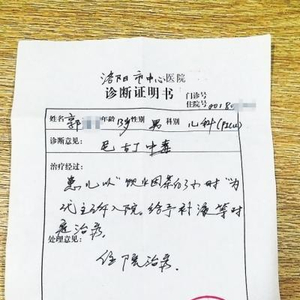 洛阳市中心医院
诊断证明书
门诊号
住院号 00180
姓名 郭 年龄 13岁 性别 男 科别 儿科(PICU)
诊断意见:
乌头中毒
治疗经过:
患儿以"饮
小时"为
代主诉入院,给予补液等对
症治疗。
处理意见:
住院治疗.